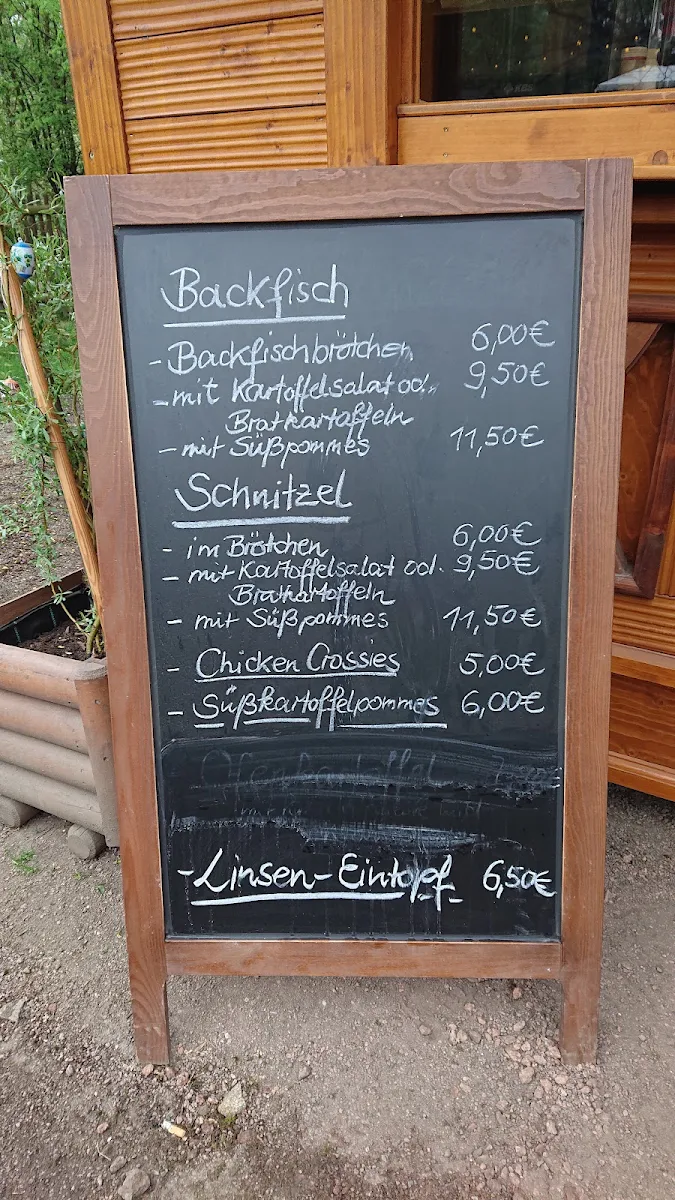 Backfisch
- Backfischbrötchen 6,00€
- mit Kartoffelsalat od. 9,50€
Bratkartoffeln
- mit Süßpommes 11,50€
Schnitzel
- im Brötchen 6,00€
- mit Kartoffelsalat od. 9,50€
Bratkartoffeln
- mit Süßpommes 11,50€
- Chicken Crossies 5,00€
- Süßkartoffelpommes 6,00€
Ofenkartoffel
- Linsen-Eintopf 6,50€